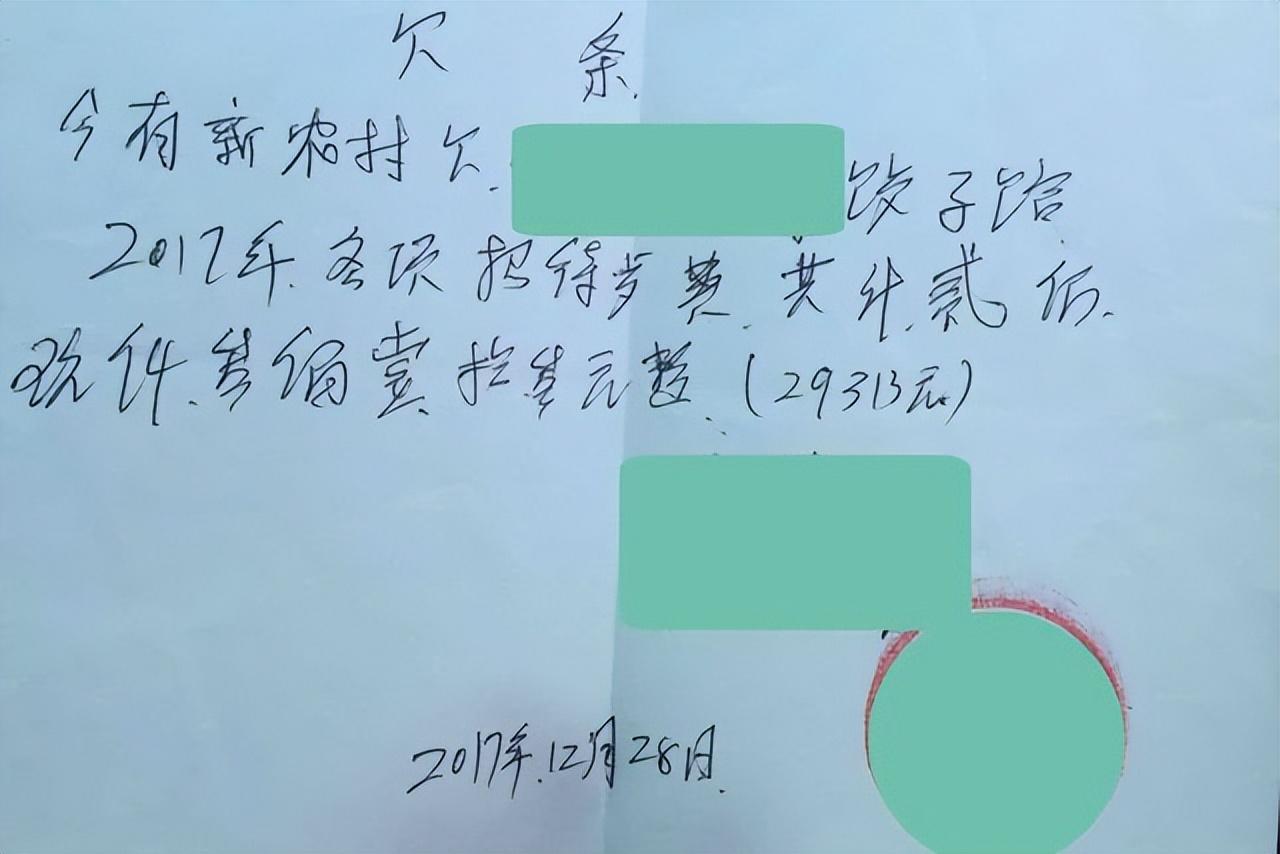 欠 条
今有新农村欠 饺子馆
2017年各项招待岁费共计贰仟
玖仟叁佰壹拾叁元整(29313元)
2017年12月28日